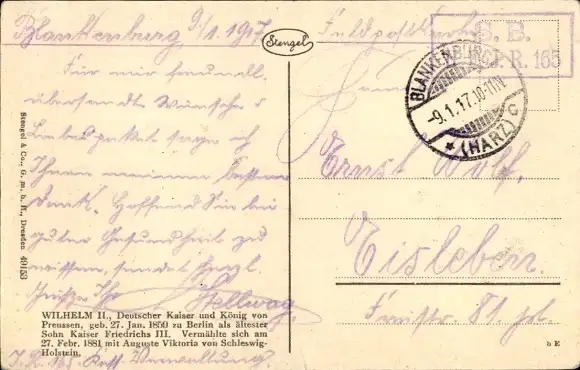 Blankenburg 9/1.1917
Stengel
Feldpostkarte
S. B.
J. R. 165
BLANKENBURG
-9.1.17.10-11V.
* (HARZ) C
Für mir freundl.
übersendte Wünsche &
Liebespaket sage ich
Ihnen meinen besten
Dank. Hoffend Sie bei
guter Gesundheit zu
wissen, sendet herzl.
Grüße Ihr Stellwag
Herrn
Ernst Wolf.
Eisleben.
Freistr. 81
WILHELM II., Deutscher Kaiser und König von
Preussen, geb. 27. Jan. 1859 zu Berlin als ältester
Sohn Kaiser Friedrichs III. Vermählte sich am
27. Febr. 1881 mit Auguste Viktoria von Schleswig-
Holstein.
J. R. 165. Verwaltung.
Stengel & Co., G. m. b. H., Dresden 49153
b E